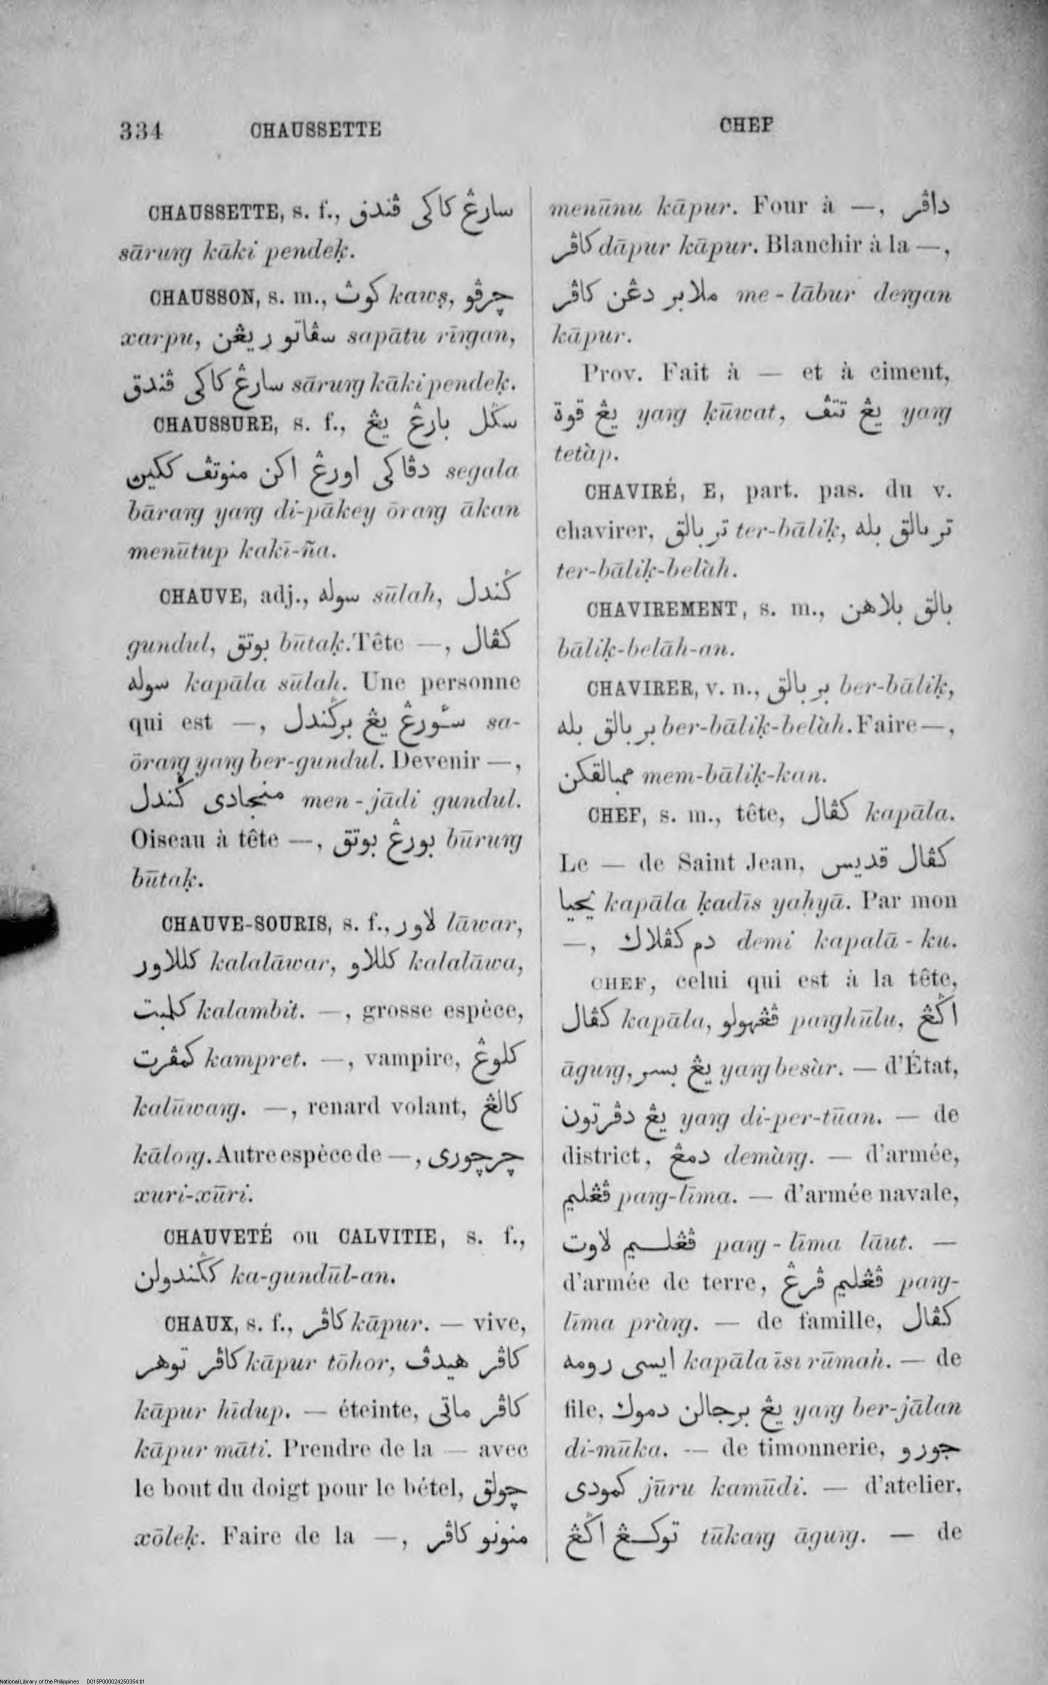 334 CHAUSSETTE CHEF
CHAUSSETTE, s. f., سارڠ كاكى ڤندق
sāruŋ kāki pendeḳ.
CHAUSSON, s. m., كوث kawṣ, چرڤو
xarpu, سڤاتو ريڠن sapātu rīŋgan,
سارڠ كاكى ڤندق sāruŋ kāki pendeḳ.
CHAUSSURE, s. f., سݢل بارڠ يڠ
دڤاكى اورڠ اكن منوتڤ ككين segala
bāraŋ yaŋ di-pākey ōraŋ ākan
menūtup kakī-ña.
CHAUVE, adj., سوله sūlah, ݢندل
gundul, بوتق būtaḳ. Tête —, كڤال
سوله kapāla sūlah. Une personne
qui est —, سئورڠ يڠ برݢندل sa-
ōraŋ yaŋ ber-gundul. Devenir —,
منجادى ݢندل men-jādi gundul.
Oiseau à tête —, بورڠ بوتق būruŋ
būtaḳ.
CHAUVE-SOURIS, s. f., لاور lāwar,
كللاور kalalāwar, كللاو kalalāwa,
كلمبت kalambit. —, grosse espèce,
كمڤرت kampret. —, vampire, كلوڠ
kalūwaŋ. —, renard volant, كالڠ
kāloŋ. Autre espèce de —, چرچورى
xuri-xūri.
CHAUVETÉ ou CALVITIE, s. f.,
كݢندولن ka-gundūl-an.
CHAUX, s. f., كاڤر kāpur. — vive,
كاڤر توهر kāpur tōhor, كاڤر هيدڤ
kāpur hīdup. — éteinte, كاڤر ماتى
kāpur māti. Prendre de la — avec
le bout du doigt pour le bétel, چولق
xōleḳ. Faire de la —, منونو كاڤر
menūnu kāpur. Four à —, داڤر
كاڤر dāpur kāpur. Blanchir à la —,
ملابر دڠن كاڤر me-lābur deŋan
kāpur.
Prov. Fait à — et à ciment,
يڠ قوة yaŋ ḳūwat, يڠ تتڤ yaŋ
tetàp.
CHAVIRÉ, E, part. pas. du v.
chavirer, تر بالق ter-bāliḳ, تر بالق بله
ter-bāliḳ-belàh.
CHAVIREMENT, s. m., بالق بلاهن
bāliḳ-belāh-an.
CHAVIRER, v. n., بر بالق ber-bāliḳ,
بر بالق بله ber-bāliḳ-belàh. Faire —,
ممبالقكن mem-bāliḳ-kan.
CHEF, s. m., tête, كڤال kapāla.
Le — de Saint Jean, كڤال قديس
يحيا kapāla ḳadīs yaḥyā. Par mon
—, دم كڤلاك demi kapalā-ku.
CHEF, celui qui est à la tête,
كڤال kapāla, ڤڠهولو paŋhūlu, اݢڠ
āguŋ, يڠ بسر yaŋ besàr. — d'État,
يڠ دڤرتون yaŋ di-per-tūan. — de
district, دمڠ demàŋ. — d'armée,
ڤڠليم paŋ-līma. — d'armée navale,
ڤڠليم لاوت paŋ-līma lāut. —
d'armée de terre, ڤڠليم ڤرڠ paŋ-
līma pràŋ. — de famille, كڤال
ايسى رومه kapāla īsi rūmah. — de
file, يڠ برجالن دموك yaŋ ber-jālan
di-mūka. — de timonnerie, جورو
كمودى jūru kamūdi. — d'atelier,
توكڠ اݢڠ tūkaŋ āguŋ. — de
National Library of the Philippines